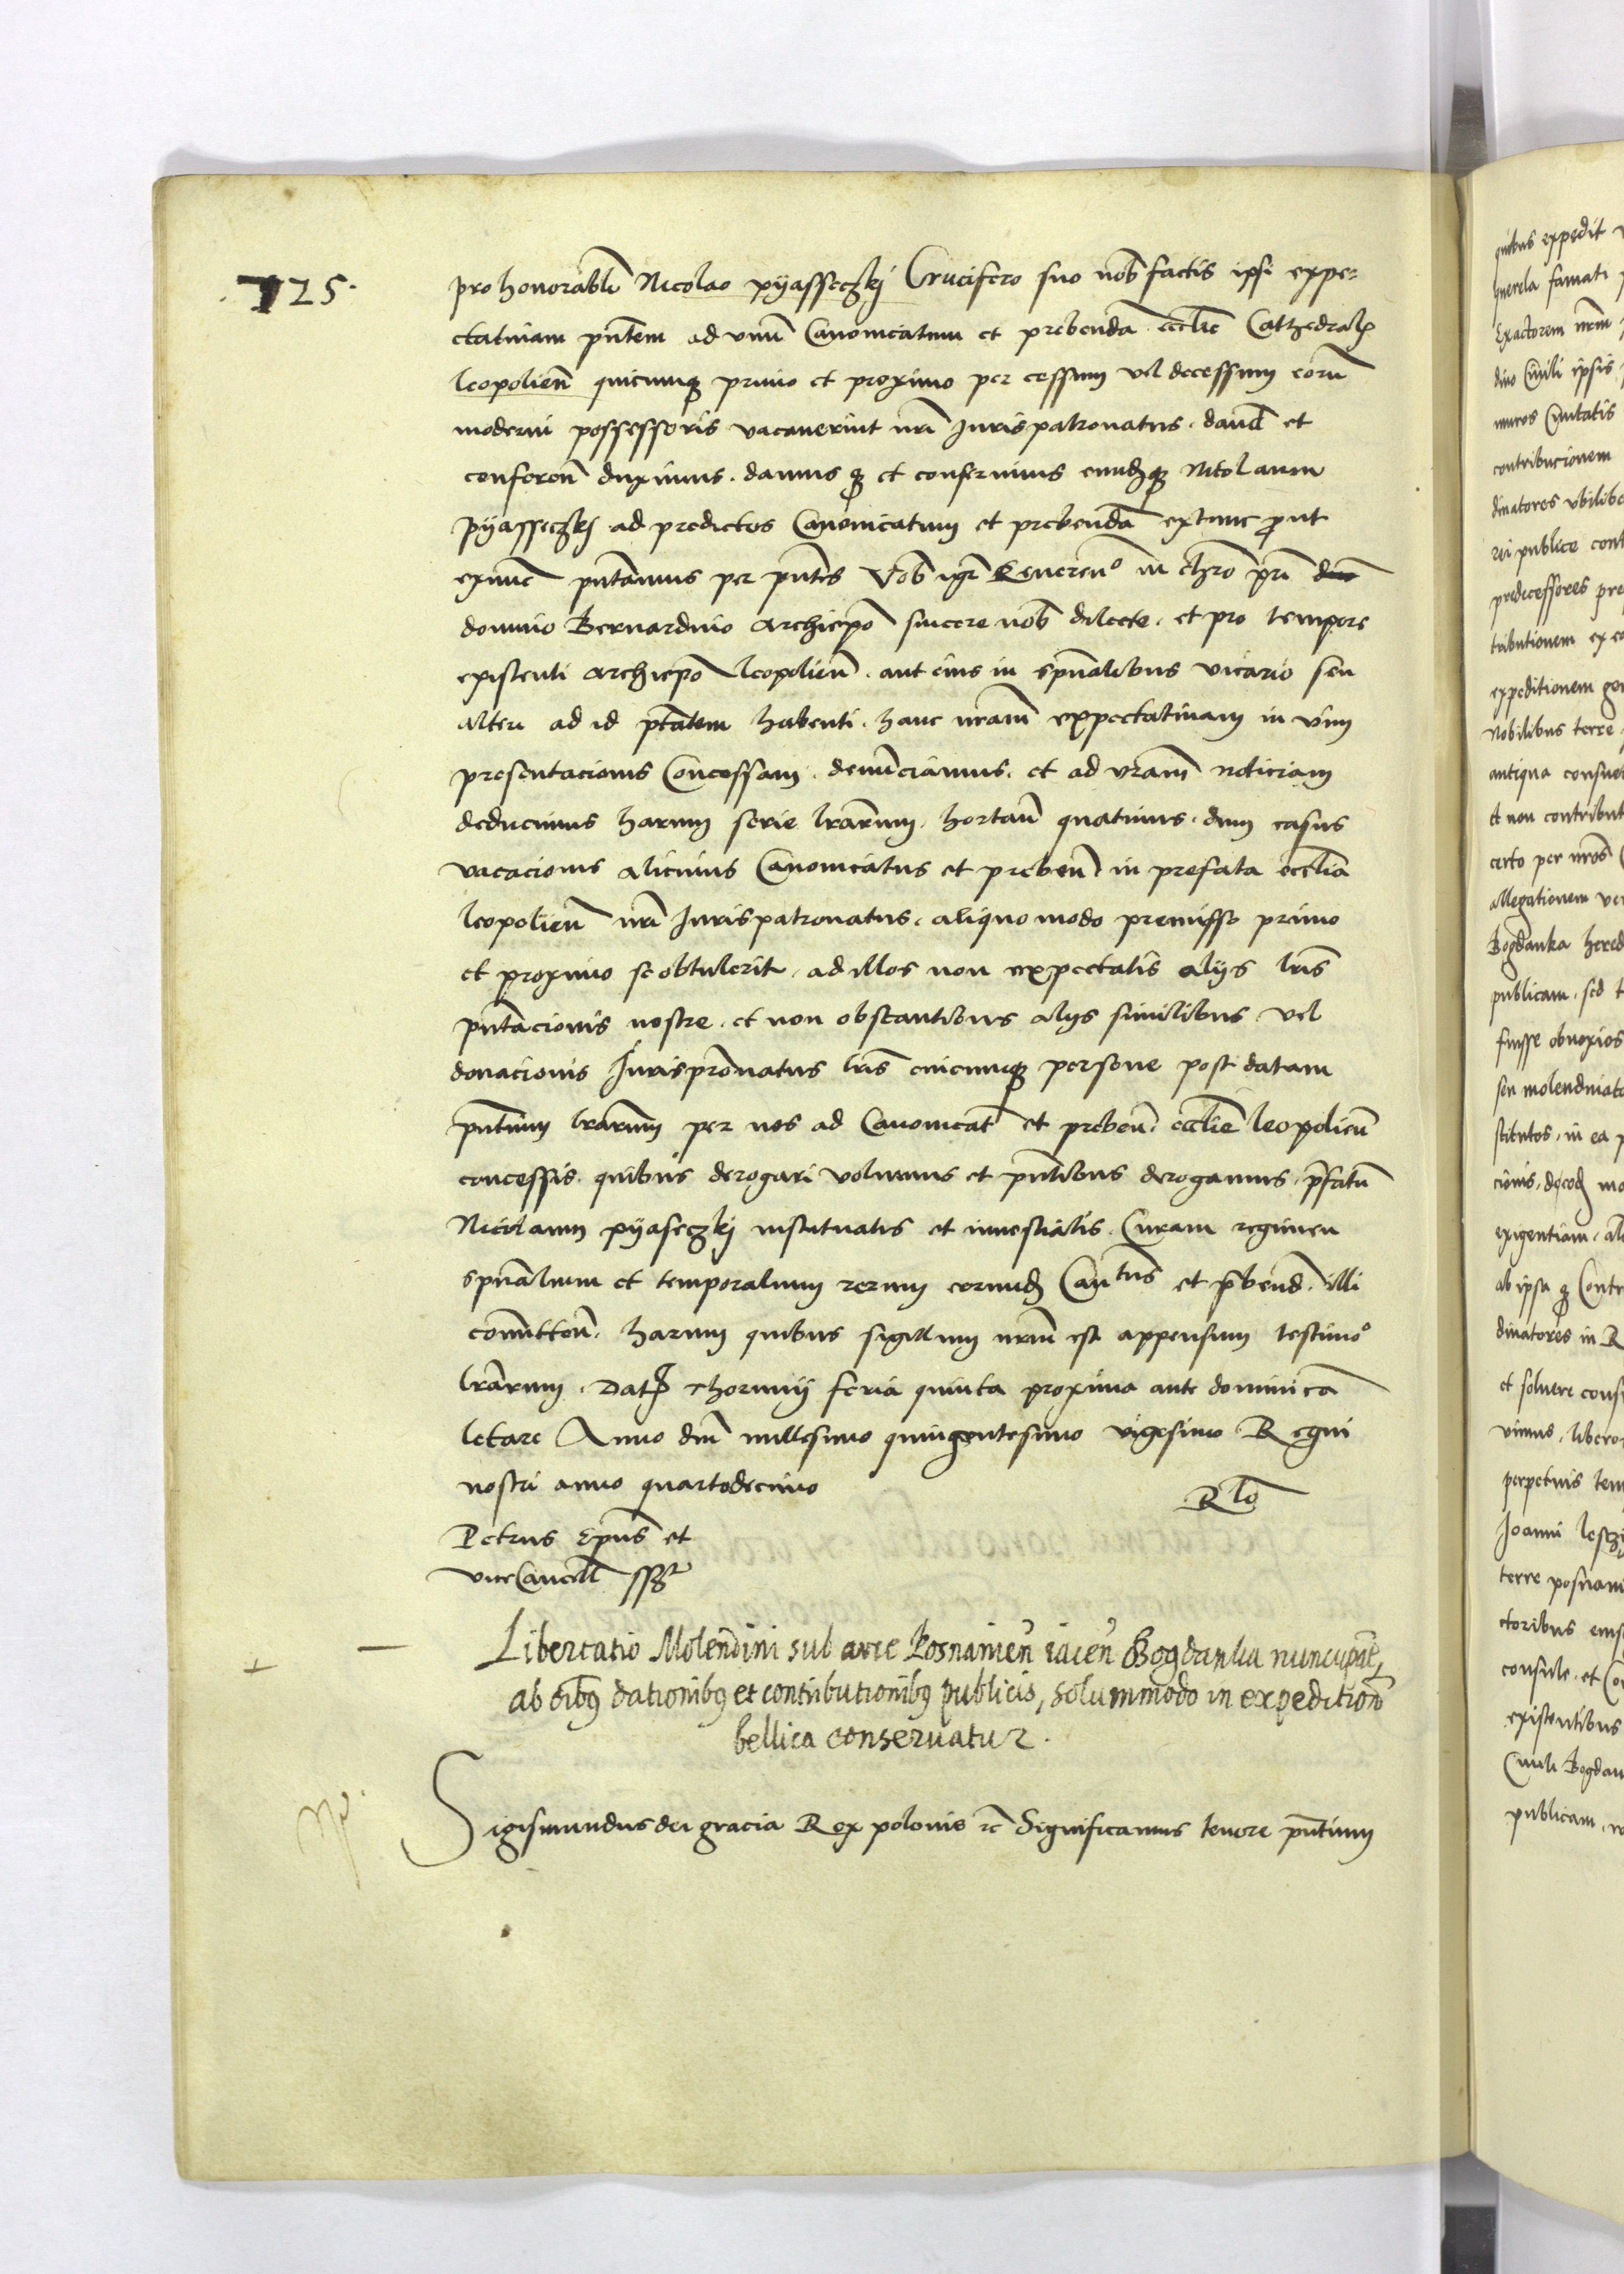 725.
pro honorabli Nicolao pyasseczkj Crucifero suo nob factis ipsi expe=
ctatiuam pntem ad vnu Canonicatum et prebenda ecclie Cathedral
leopolien quicunq primo et proximo per cessum vel decessum eoru
moderni possessoris vacauerint nri Jurispatronatus. dand et
conferen duximus. damus q et conferimus eundq Nicolaum
pyasseczkj ad predictos Canonicatum et prebenda extunc prout
exnunc pntamus per pntes Vob igr Reueren in chro pri
domino Bernardino Archiepo sincere nob dilecte. et pro tempore
existenti Archiepo leopolien. aut eius in spualibus vicario seu
alteri ad id ptatem habenti. hanc nram expectatiuam in vim
presentacionis Concessam. denunciamus. et ad vram noticiam
deducimus harum serie lrarum. hortan quatinus. dum casus
vacacionis alicuius Canonicatus et preben in prefata ecclia
leopolien nri Jurispatronatus. aliquo modo premisso primo
et proximo se obtulerit. ad illos non expectatis alijs lris
pntacionis nostre. et non obstantibus alijs similibus vel
donacionis Jurisptronatus lris cuicunq persone post datam
pntium lrarum per nos ad Canonicat et preben. ecclie leopolien
concessis. quibus derogari volumus et pntibus derogamus. prfatu
Nicolaum pyaseczkj instituatis et inuestiatis. Curam regimen
spualium et temporalium rerum eorund Cantus et prbend. illi
committen. harum quibus sigillum nrum est appensum testimo
lrarum. Dat Thorunij feria quinta proxima ante dominica
letare Anno dni millesimo quingentesimo vigesimo Regni
nostri anno quartodecimo
Rlo
Petrus Epus et
viceCancell sszt
Libertatio Molendini sub arce Posnanien iacen Bogdanka nuncupate,
ab oibus dationibus et contributionibus publicis, solummodo in expeditione
bellica conseruatur.
Sigismundus dei gracia Rex polonie rc Significamus tenore pntium
quibus expedit
querela famati
Exactorem nrm
dino Ciuili ipsis
muros Ciuitatis
contribucionem
dinatores vbilibe
rei publice cont
predecessores pre
tributionem ex eo
expeditionem gen
Nobilibus terre
antiqua consuet
et non contribut
certo per nros
allegationem ver
Bogdanka hered
publicam. sed t
fuisse obnoxios
seu molendinato
stitutos. in ea p
exigentiam. al
ab ipsa q Contr
dinatores in R
et soluere cons
uimus. libero
perpetuis tem
Joanni lesz
terre posnani
ctoribus eius
consule. et Co
existentibus
Ciuili Bogdan
publicam.